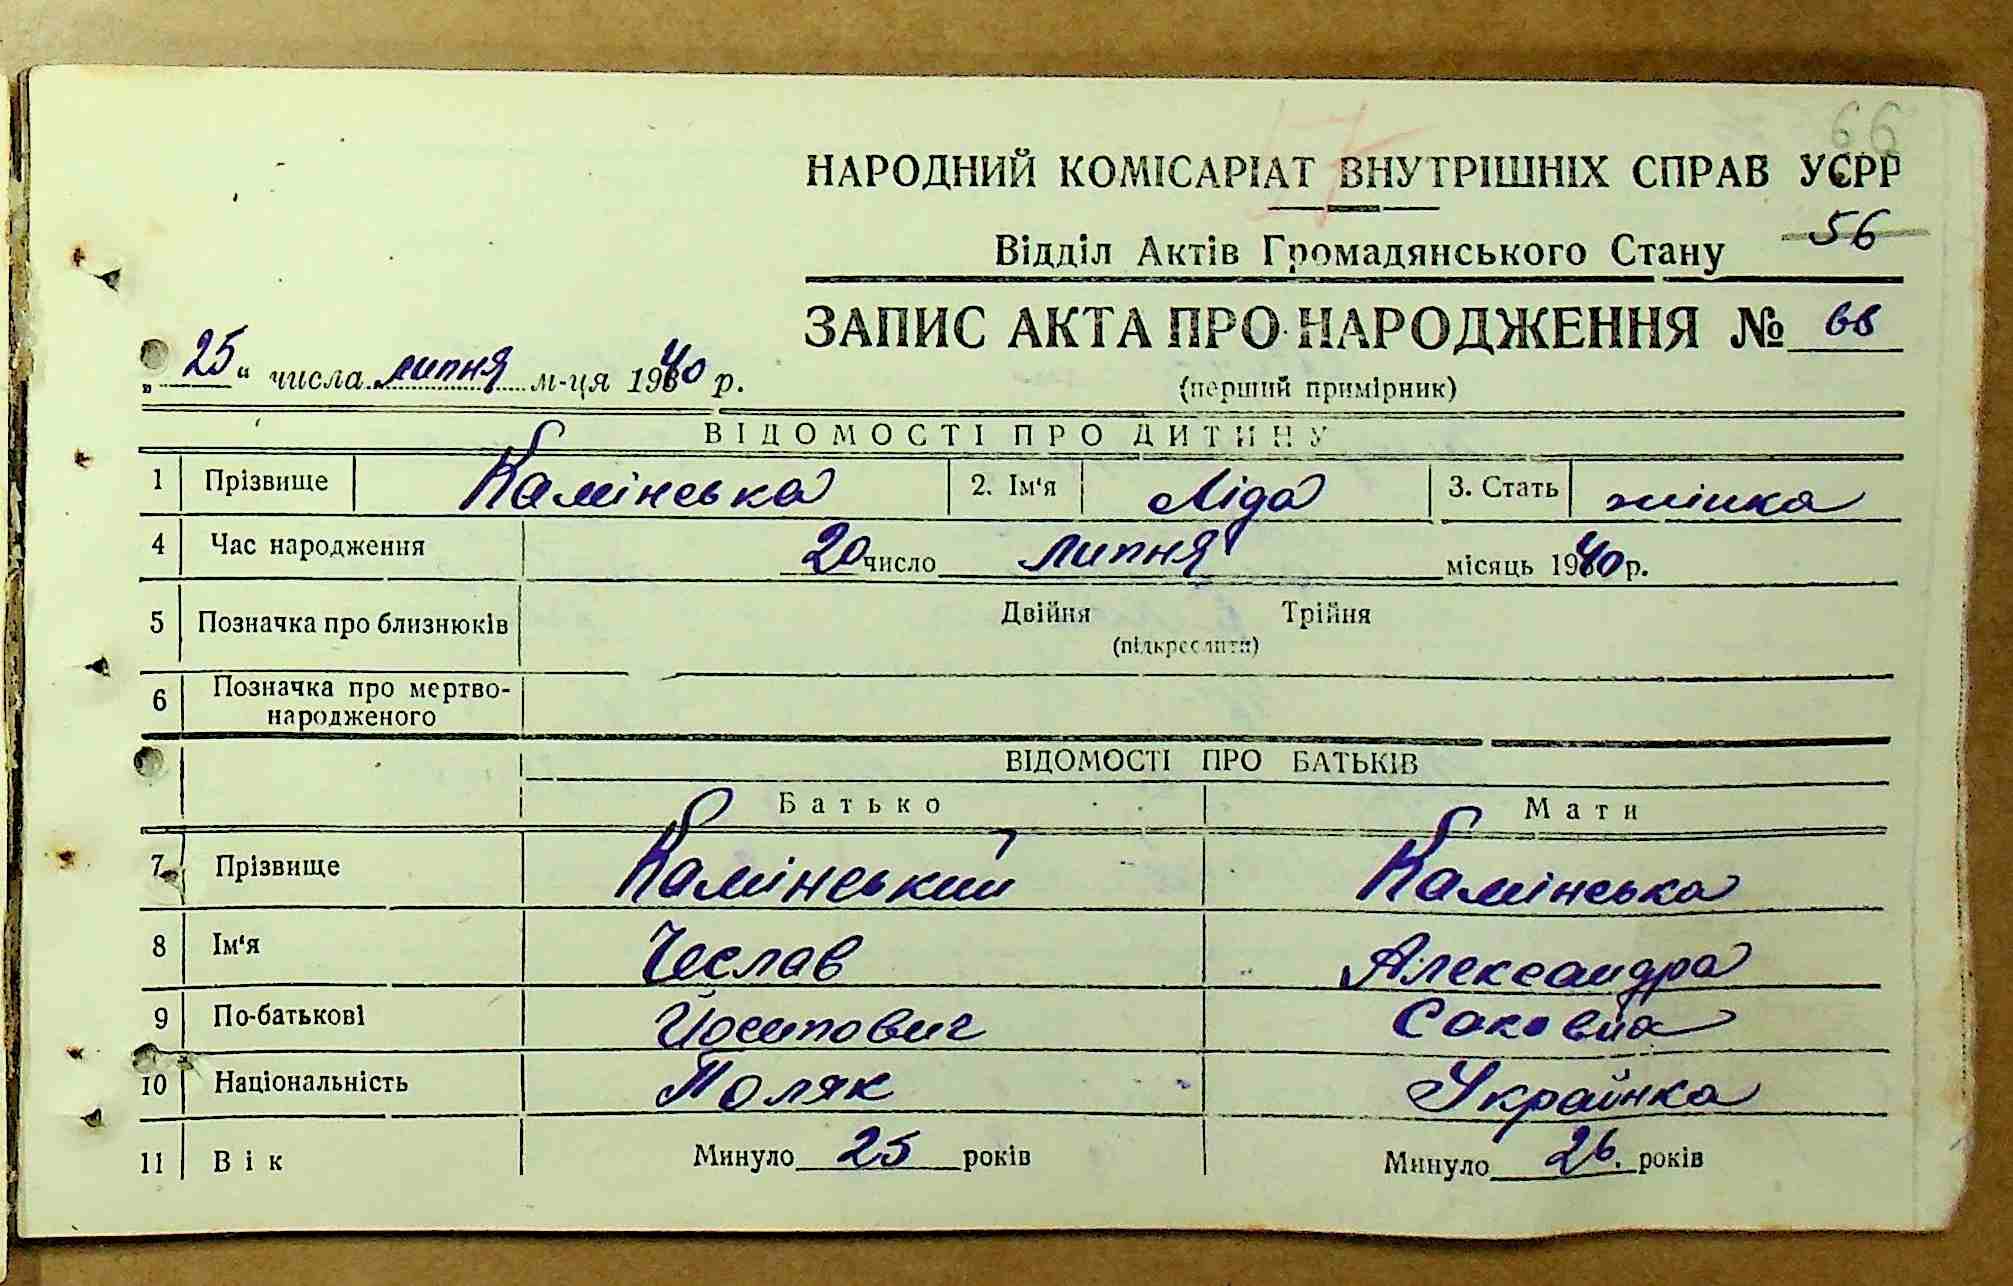 66
НАРОДНИЙ КОМІСАРІАТ ВНУТРІШНІХ СПРАВ УСРР
56
Відділ Актів Громадянського Стану
ЗАПИС АКТА ПРО НАРОДЖЕННЯ № 66
„25“ числа липня м-ця 1940 р.
(перший примірник)
ВІДОМОСТІ ПРО ДИТИНУ
1 Прізвище Камінська 2. Ім'я Ліда 3. Стать жінка
4 Час народження 20 число липня місяць 1940 р.
5 Позначка про близнюків Двійня Трійня
(підкреслити)
6 Позначка про мертво-
народженого
ВІДОМОСТІ ПРО БАТЬКІВ
Батько Мати
7 Прізвище Камінський Камінська
8 Ім'я Чеслав Александра
9 По-батькові Йосипович
10 Національність Поляк Українка
11 Вік Минуло 25 років Минуло 26. років